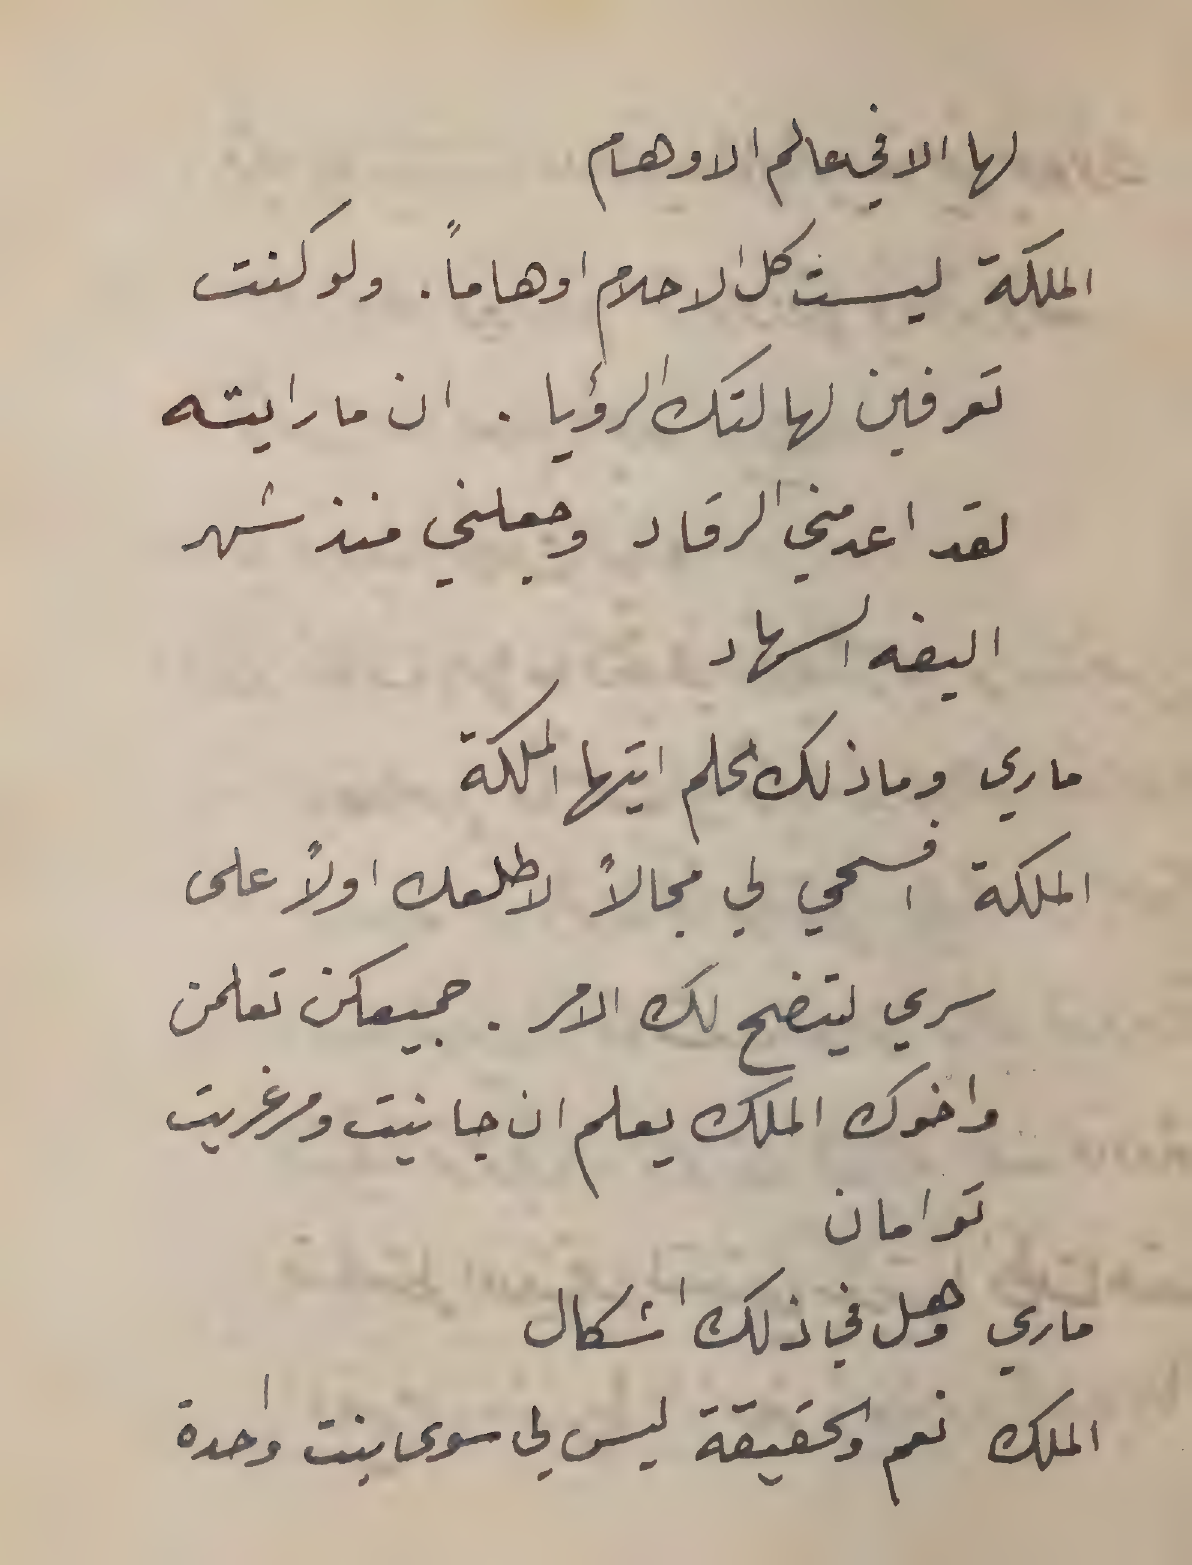 لها الا في عالم الاوهام
الملكة ليست كل الاحلام اوهاماً. ولو كنت
تعرفين لها لتك الرؤيا. ان ما رايته
لقد اعدمني الرقاد وجعلني منذ شهر
اليفه السهاد
ماري وما ذلك الحلم ايتها الملكة
الملكة افسحي لي مجالاً لاطلعك اولاً على
سري ليتضح لك الامر. جميعكن تعلمن
واخوك الملك يعلم ان جانيت ومرغريت
توامان
ماري وهل في ذلك اشكال
الملك نعم والحقيقة ليس لي سوى بنت واحدة